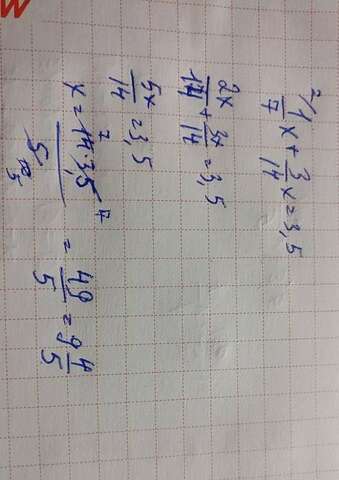 2/ 1/7 x + 3/14 x = 3,5
2x/14 + 3x/14 = 3,5
5x/14 = 3,5
x = 14 · 3,5 / 5 = 49/5 = 9 4/5